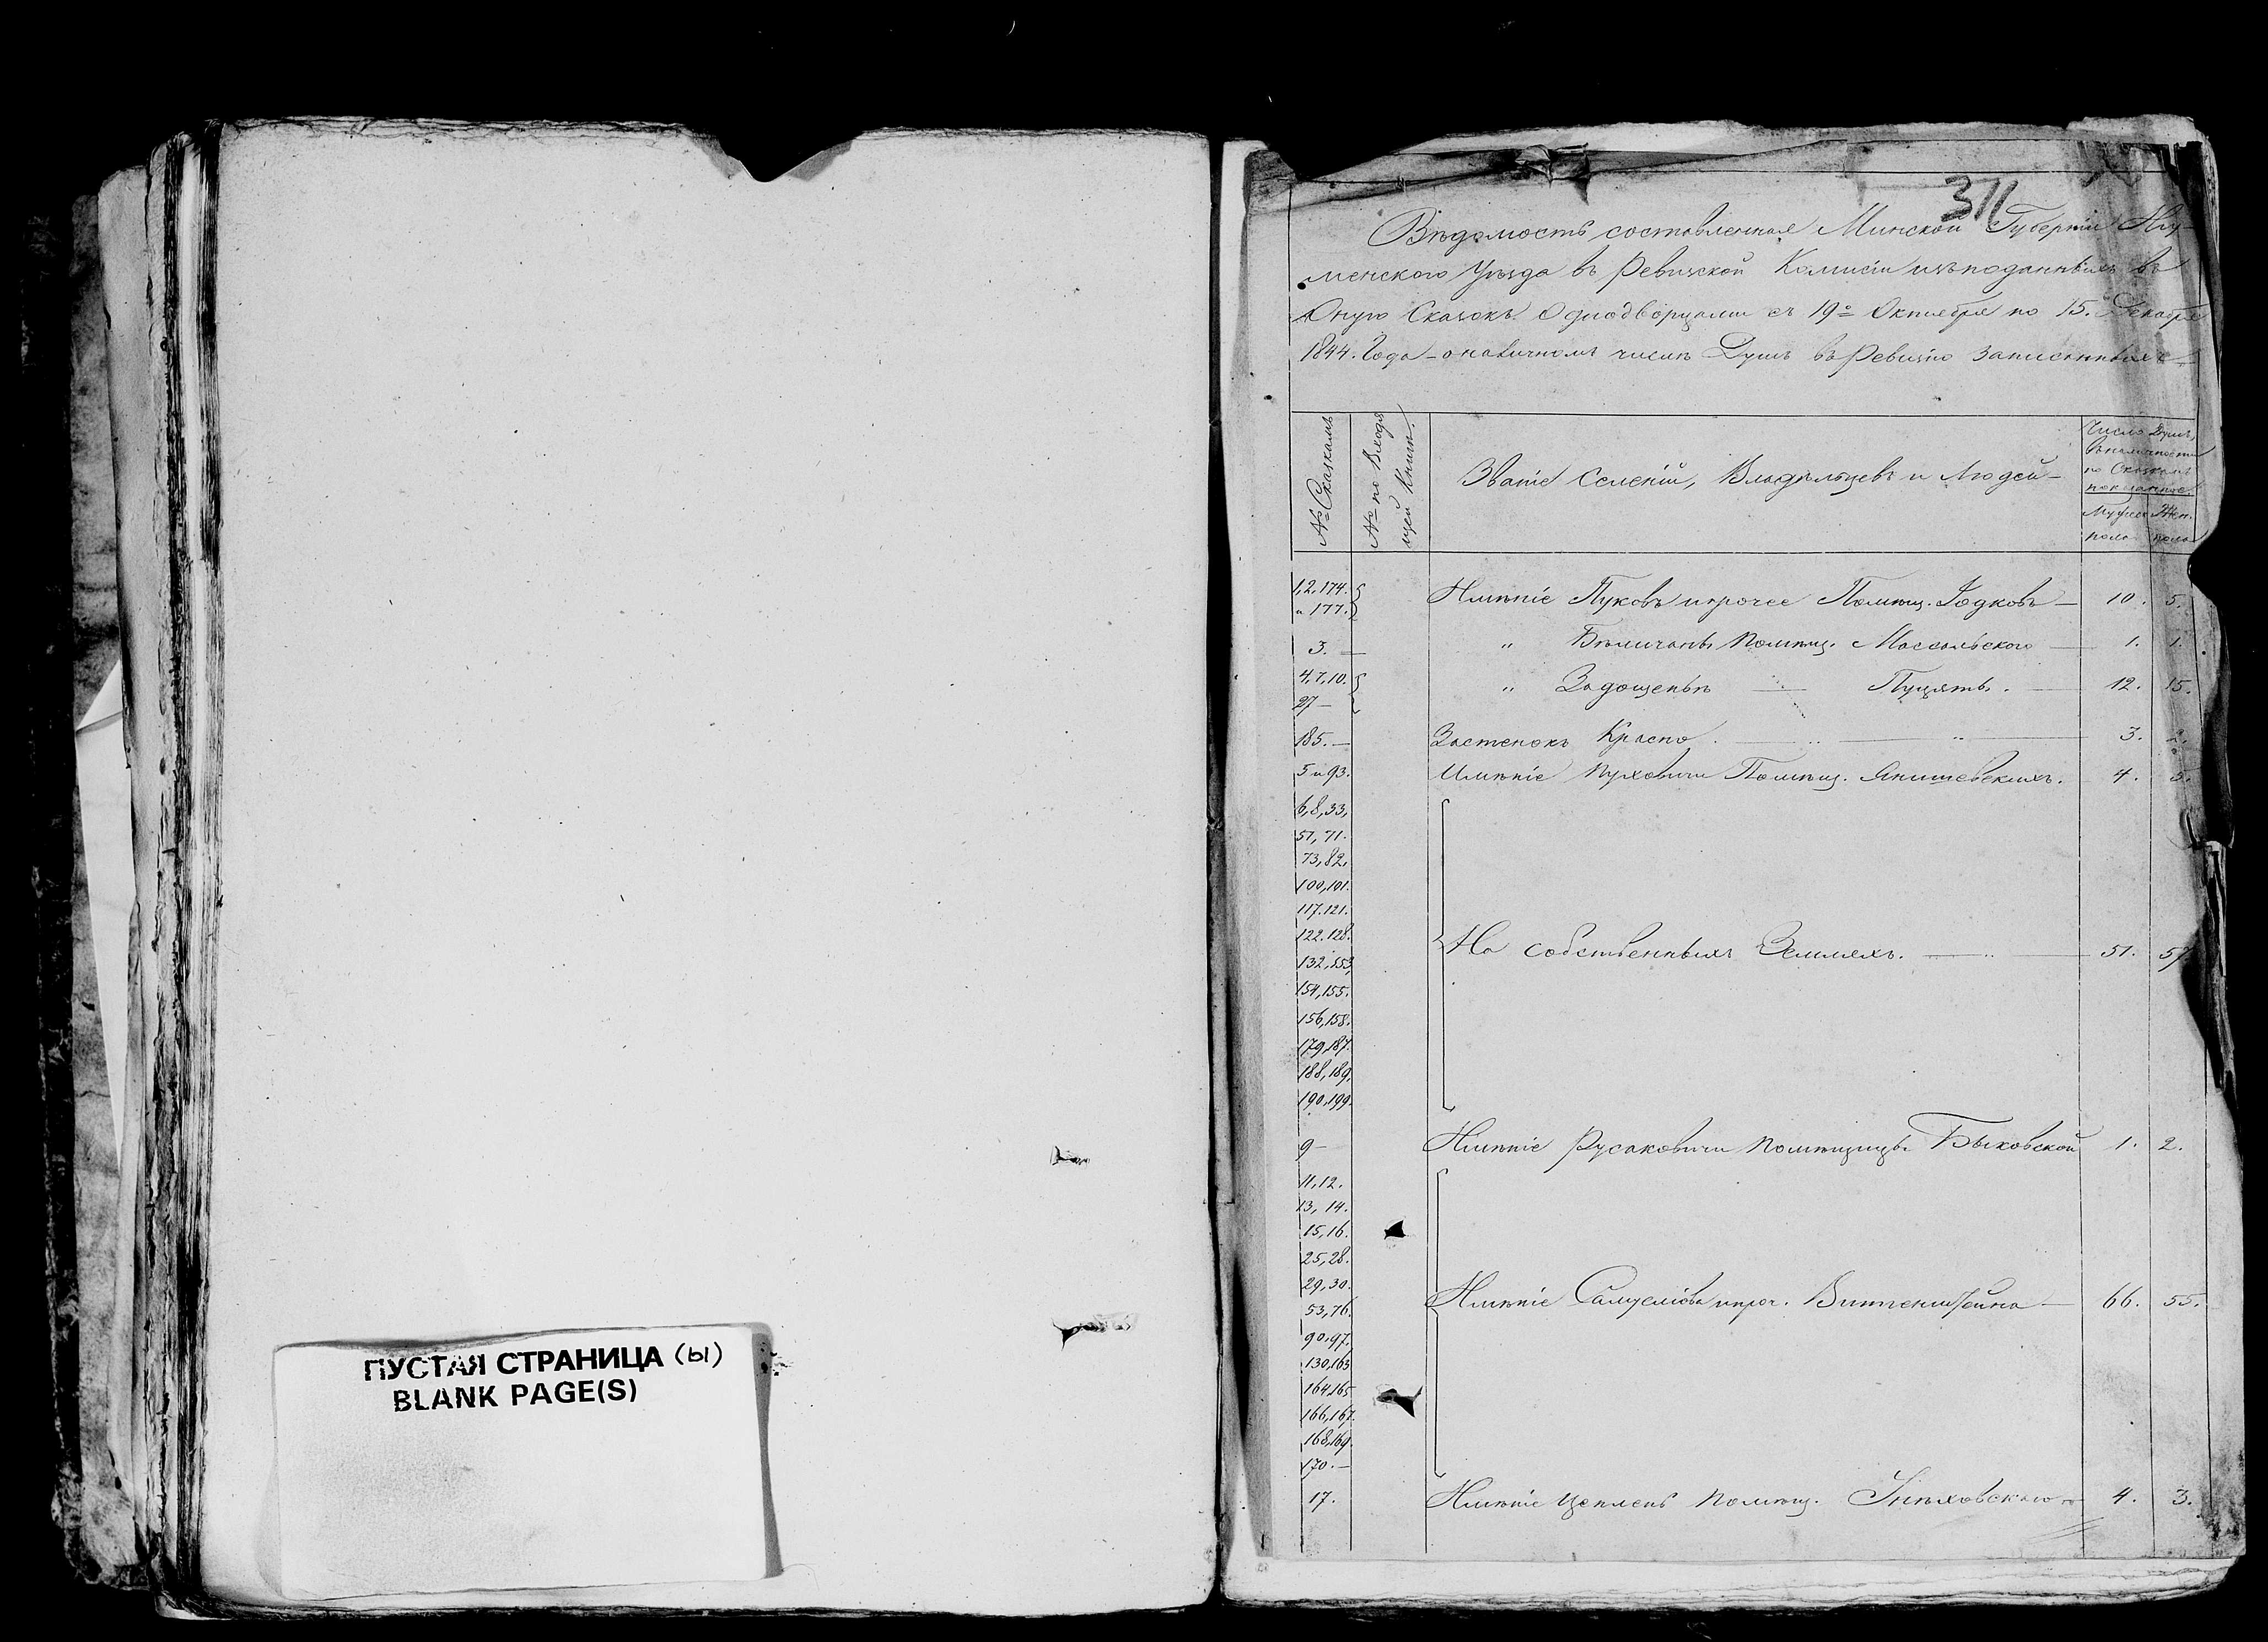 ПУСТАЯ СТРАНИЦА (ы)
BLANK PAGE(S)
311
Вѣдомость составленная Минской Губерніи Игу-
менского Уѣзда въ Ревизской Комисіи изъ поданныхъ въ
Оную Сказокъ Однодворцами съ 19º Октября по 15. Декабря
1844. Года – о наличномъ числѣ Душъ въ Ревизію записанныхъ –
№ Сказкамъ
№ по Входя
щей Книги.
Званіе Селеній, Владѣльцевъ и Людей –
Число Душъ,
въ наличности
по Сказкамъ
показанное.
Мужес. Жен.
пола пола
1, 2, 174. и 177. Имѣніе Пуковъ и прочее Помѣщ. Іодковъ — 10. 5.
3. — " Бѣличаны Помѣщ. Массальского — 1. 1.
4, 7, 10. 27 — " Задощенье — " — Пуцятъ. — 12. 15.
185. — Застенокъ Красно. — " — " — 3. 2.
5 и 93. Имѣніе Пуховичи Помѣщ. Янишевскихъ. 4. 5.
6, 8, 33,
51, 71.
73, 82.
100, 101.
117. 121.
122. 128.
132, 153,
На собственныхъ Земляхъ. — " — 51. 57
154, 155.
156, 158.
179, 187.
188, 189,
190, 199.
9 — Имѣніе Русаковичи помѣщицы. Быховской 1. 2.
11, 12.
13, 14.
15, 16.
25, 28.
29, 30.
53, 76. Имѣніе и проч. Витгенштейна — 66. 55.
90, 97.
130, 163
164, 165
166, 167.
168, 169.
170. —
17. Имѣніе Цеплень Помѣщ. 4. 3.